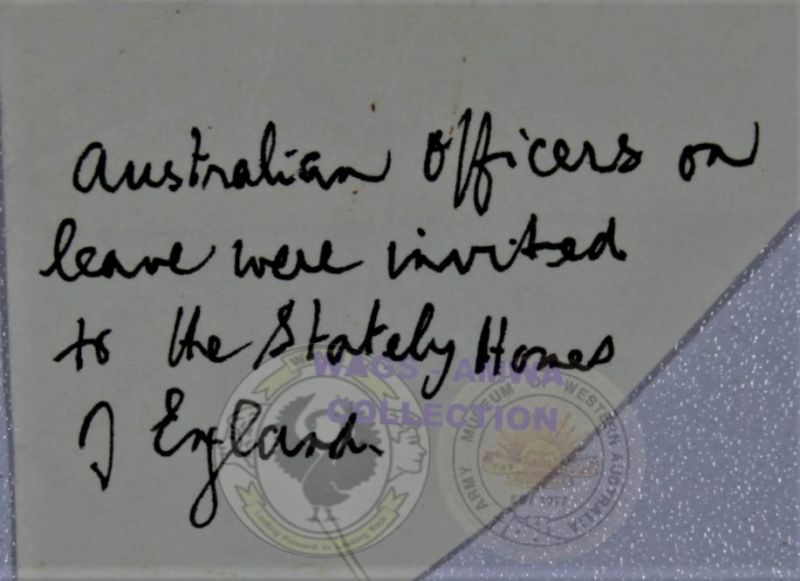 Australian Officers on
leave were invited
to the Stately Homes
of England.
WAGS - AMWA
COLLECTION
ARMY MUSEUM OF WESTERN AUSTRALIA
EST 1977
Looking Forward to Looking Back